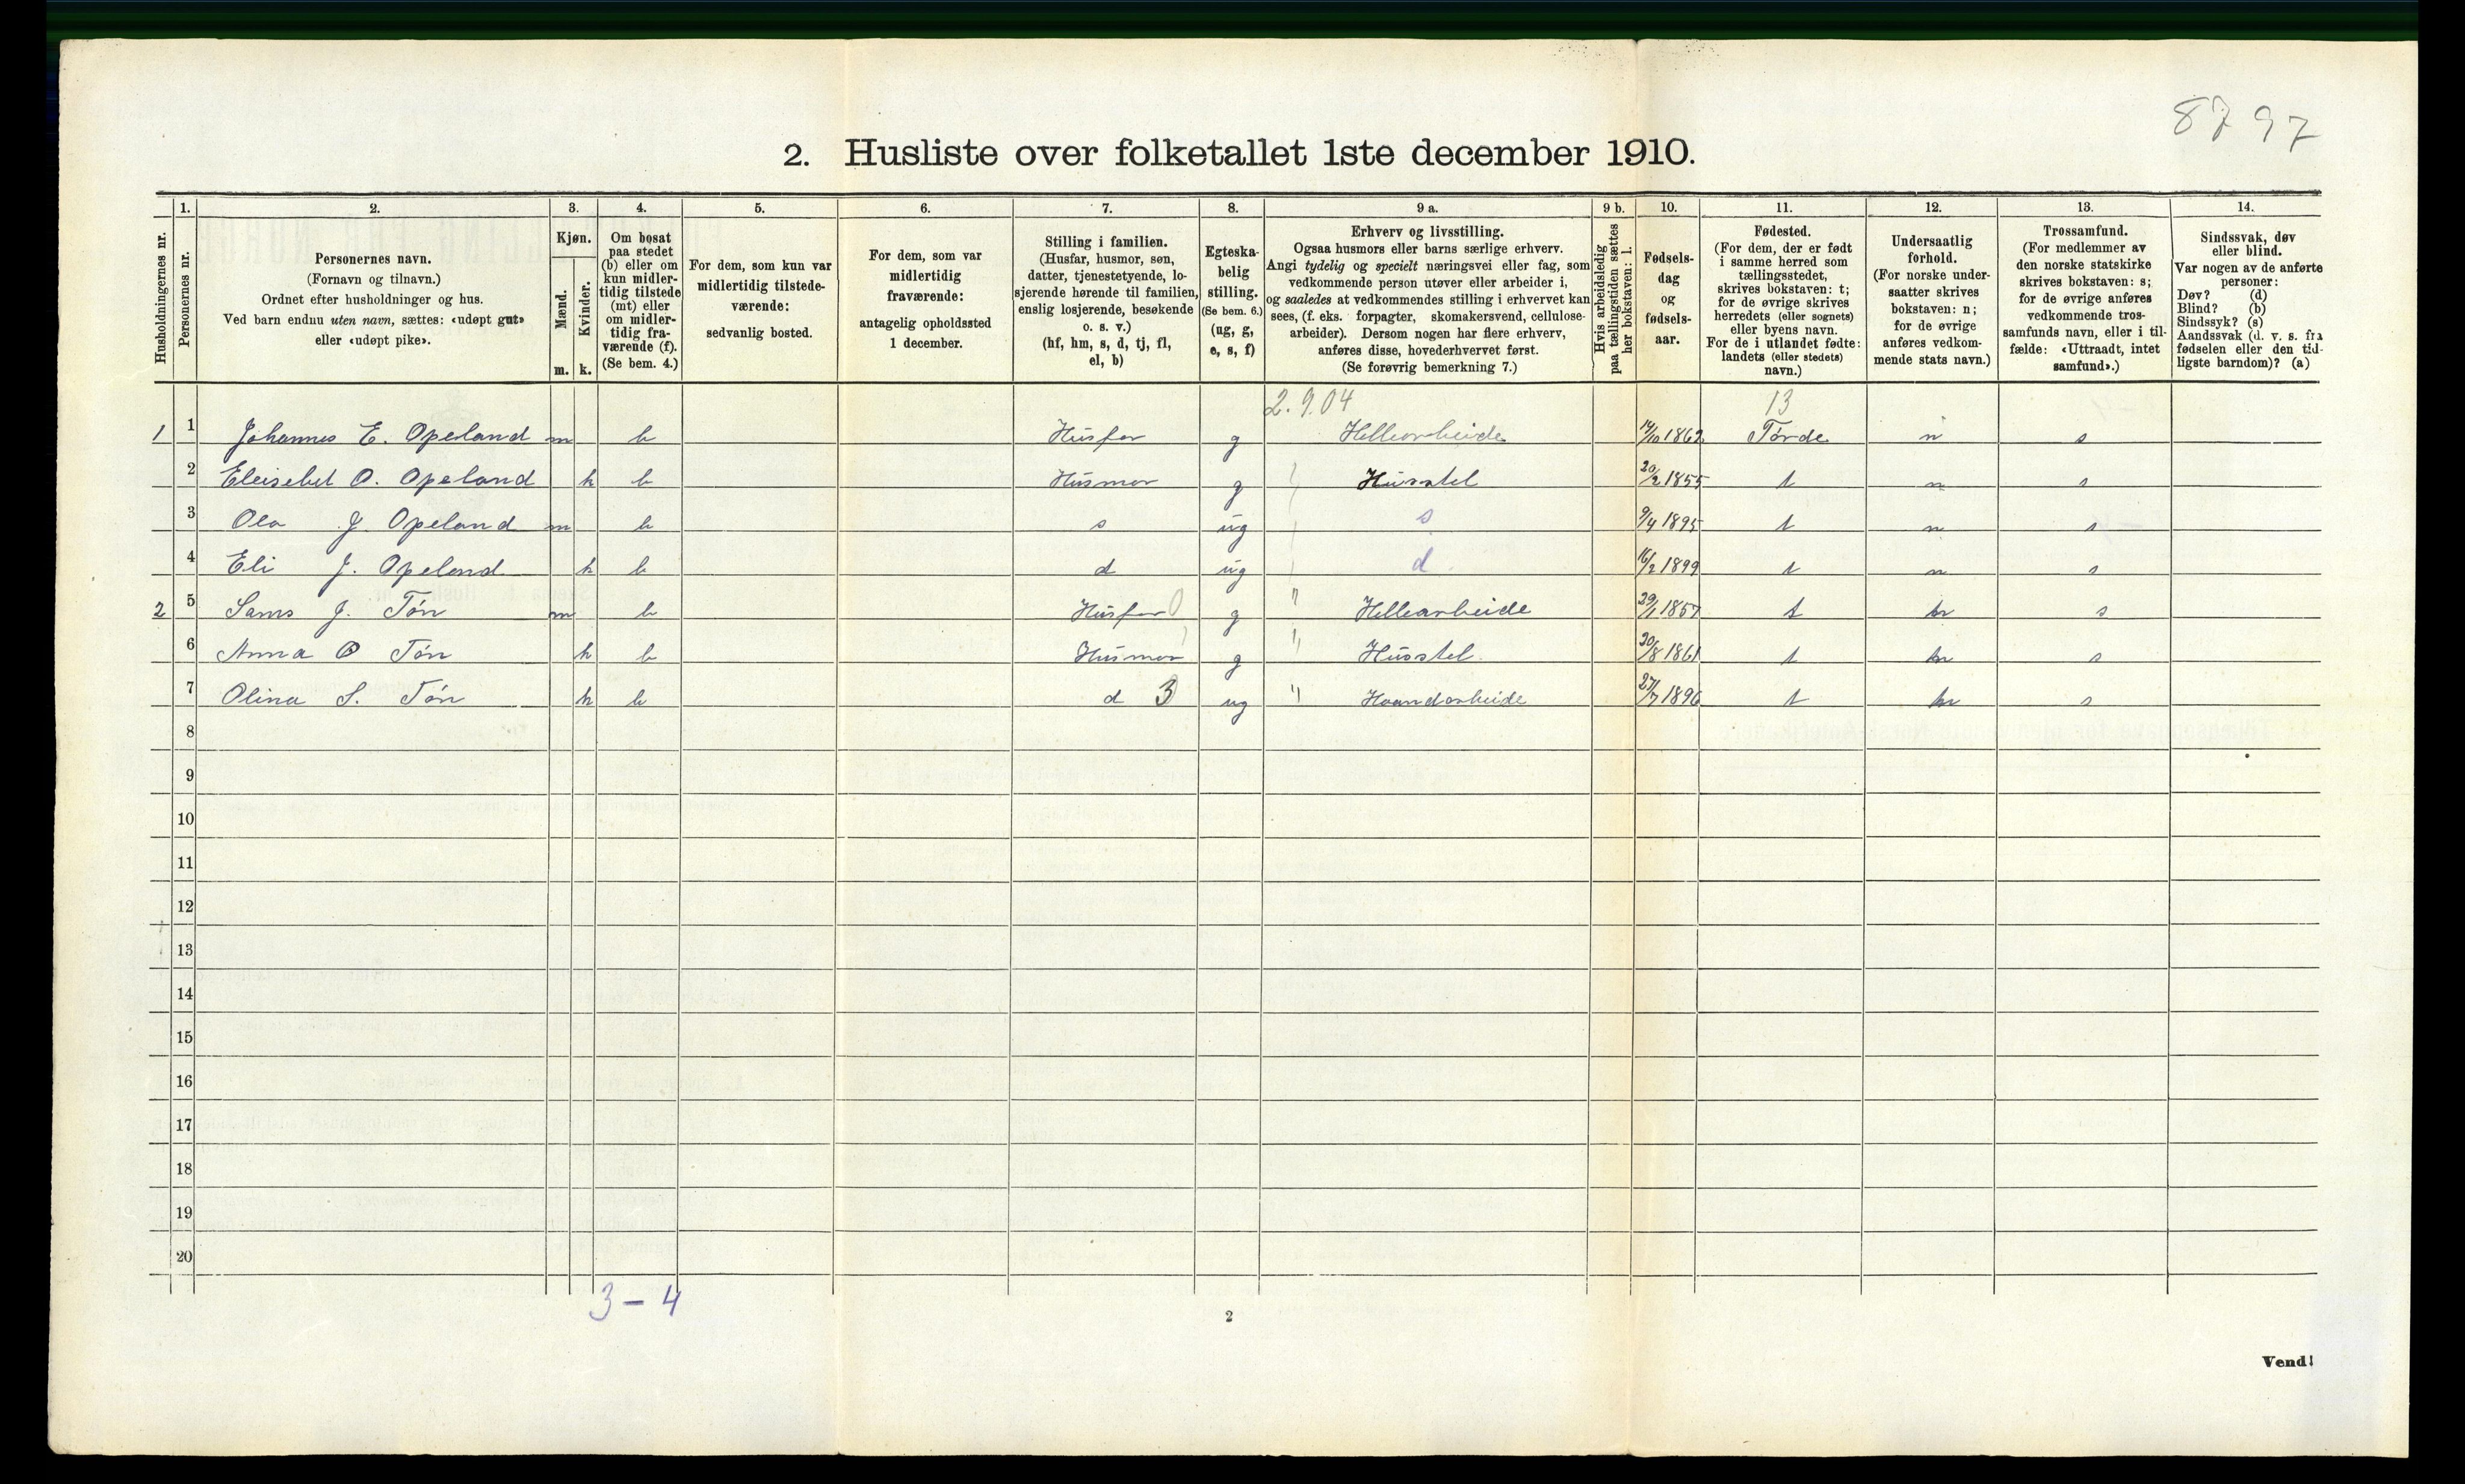 87 97
2. Husliste over folketallet 1ste december 1910.
1. 2. 3. 4. 5. 6. 7. 8. 9 a. 9 b. 10. 11. 12. 13. 14.
Husholdningernes nr.
Personernes nr.
Personernes navn.
(Fornavn og tilnavn.)
Ordnet efter husholdninger og hus.
Ved barn endnu uten navn, sættes: «udøpt gut»
eller «udøpt pike».
Kjøn.
Mænd.
Kvinder.
m. k.
Om bosat
paa stedet
(b) eller om
kun midler-
tidig tilstede
(mt) eller
om midler-
tidig fra-
værende (f).
(Se bem. 4.)
For dem, som kun var
midlertidig tilstede-
værende:
sedvanlig bosted.
For dem, som var
midlertidig
fraværende:
antagelig opholdssted
1 december.
Stilling i familien.
(Husfar, husmor, søn,
datter, tjenestetyende, lo-
sjerende hørende til familien,
enslig losjerende, besøkende
o. s. v.)
(hf, hm, s, d, tj, fl,
el, b)
Egteska-
belig
stilling.
(Se bem. 6.)
(ug, g,
e, s, f)
Erhverv og livsstilling.
Ogsaa husmors eller barns særlige erhverv.
Angi tydelig og specielt næringsvei eller fag, som
vedkommende person utøver eller arbeider i,
og saaledes at vedkommendes stilling i erhvervet kan
sees, (f. eks. forpagter, skomakersvend, cellulose-
arbeider). Dersom nogen har flere erhverv,
anføres disse, hovederhvervet først.
(Se forøvrig bemerkning 7.)
Hvis arbeidsledig
paa tællingstiden sættes
her bokstaven: l.
Fødsels-
dag
og
fødsels-
aar.
Fødested.
(For dem, der er født
i samme herred som
tællingsstedet,
skrives bokstaven: t;
for de øvrige skrives
herredets (eller sognets)
eller byens navn.
For de i utlandet fødte:
landets (eller stedets)
navn.)
Undersaatlig
forhold.
(For norske under-
saatter skrives
bokstaven: n;
for de øvrige
anføres vedkom-
mende stats navn.)
Trossamfund.
(For medlemmer av
den norske statskirke
skrives bokstaven: s;
for de øvrige anføres
vedkommende tros-
samfunds navn, eller i til-
fælde: «Uttraadt, intet
samfund».)
Sindssvak, døv
eller blind.
Var nogen av de anførte
personer:
Døv? (d)
Blind? (b)
Sindssyk? (s)
Aandssvak (d. v. s. fra
fødselen eller den tid-
ligste barndom)? (a)
2.9.04 13
1 1 Johannes E. Opeland m b Husfar g Hellearbeide 14/10 1862 Førde n s
2 Eleisebet O. Opeland k b Husmor g Husstel 20/2 1855 t n s
3 Ola J. Opeland m b s ug s 9/4 1895 t n s
4 Eli J. Opeland k b d ug d 16/2 1899 t n s
2 5 Sams J. Tøn m b Husfar 0 g " Hellearbeide 29/1 1857 t s
6 Anna O Tøn k b Husmor g " Husstel 20/8 1861 t s
7 Olina S. Tøn k b d 3 ug " Haandarbeide 27/7 1896 t s
8
9
10
11
12
13
14
15
16
17
18
19
20
3 - 4
2
Vend!